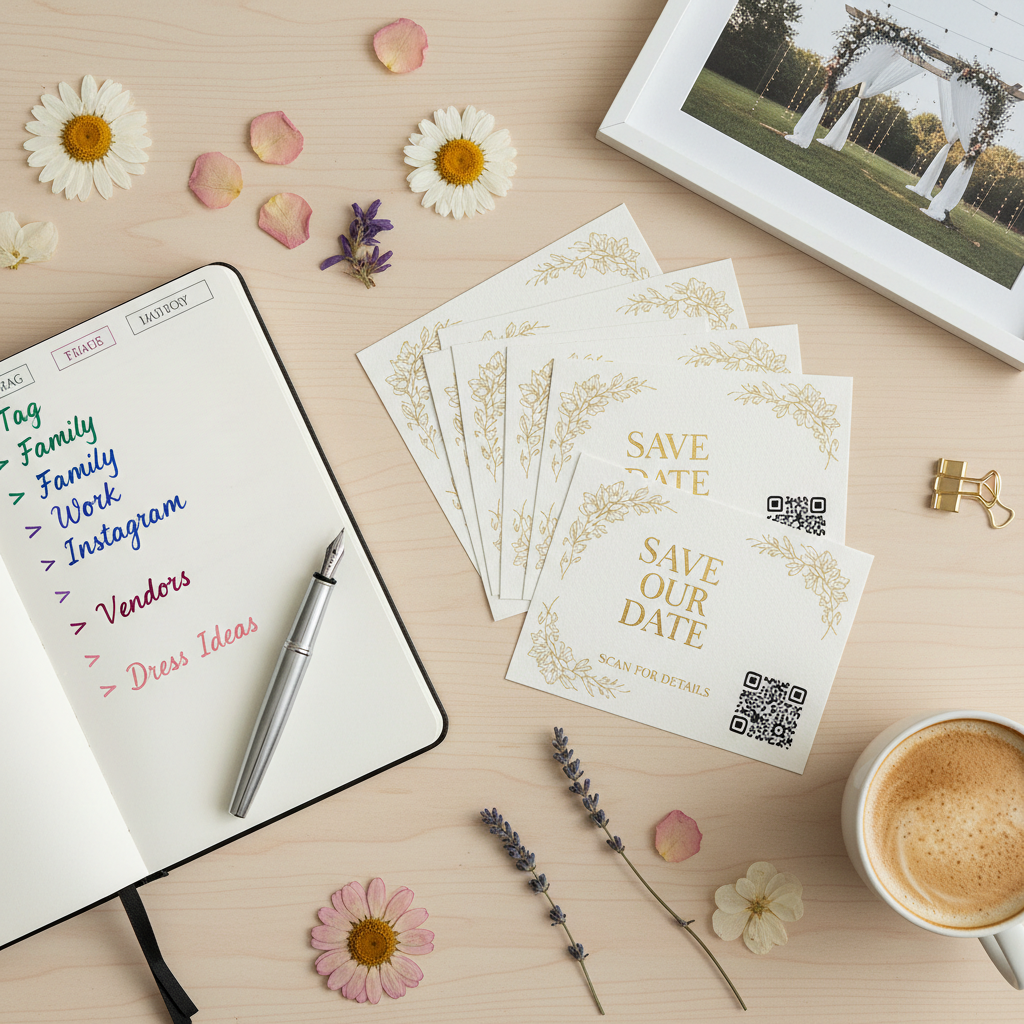 Tag
> Family
> Family
> Work
> Instagram
>
> Vendors
>
> Dress Ideas
SAVE
DATE
SAVE
OUR
DATE
SCAN FOR DETAILS